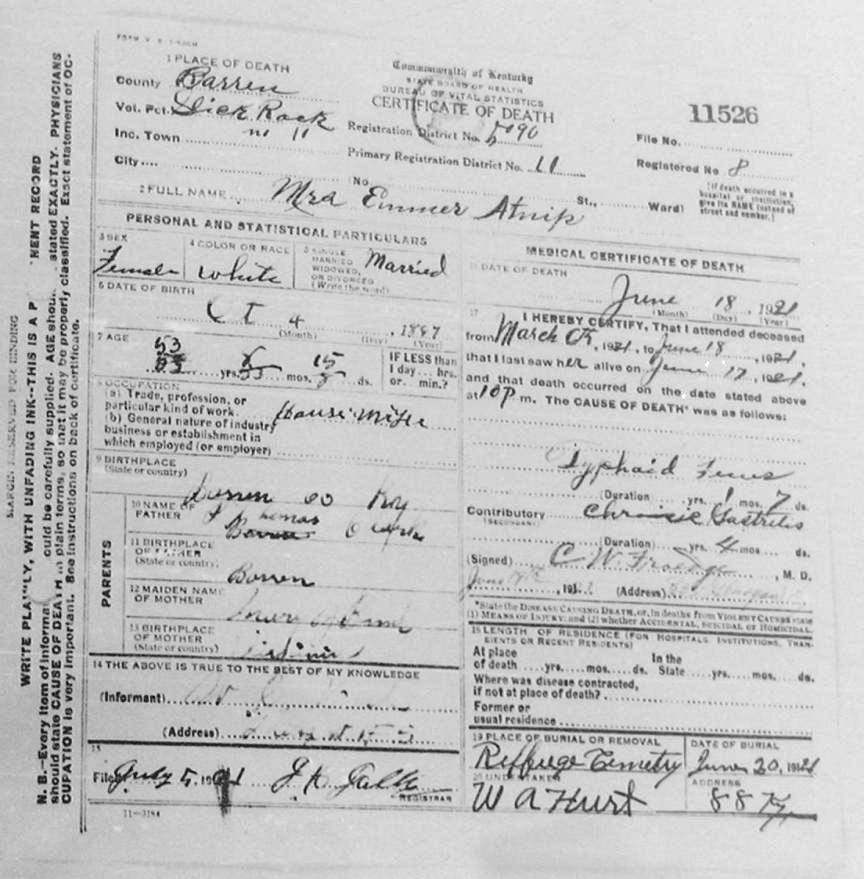 1 PLACE OF DEATH
County Barren
Vot. Pct. Dick Rock
Inc. Town
City
Commonwealth of Kentucky
STATE BOARD OF HEALTH
BUREAU OF VITAL STATISTICS
CERTIFICATE OF DEATH
Registration District No.
Primary Registration District No. 11
No. St., Ward)
11526
File No.
Registered No 8
[If death occurred in a hospital or institution, give its NAME instead of street and number.]
2 FULL NAME Mrs Emmer Atnip
PERSONAL AND STATISTICAL PARTICULARS
3 SEX
Female
4 COLOR OR RACE
White
5 SINGLE
MARRIED
WIDOWED,
OR DIVORCED
(Write the word)
Married
6 DATE OF BIRTH
4
(Month) (Day) (Year)
7 AGE
53
yrs. mos. 15 ds.
IF LESS than
1 day... hrs.
or... min.?
8 OCCUPATION
(a) Trade, profession, or
particular kind of work
(b) General nature of industry
business or establishment in
which employed (or employer)
9 BIRTHPLACE
(State or country)
Barren co Ky
PARENTS
10 NAME OF
FATHER
Thomas
11 BIRTHPLACE
OF FATHER
(State or country)
Barren
12 MAIDEN NAME
OF MOTHER
13 BIRTHPLACE
OF MOTHER
(State or country)
14 THE ABOVE IS TRUE TO THE BEST OF MY KNOWLEDGE
(Informant)
(Address)
15
Filed July 5, 1921
REGISTRAR
11-3184
MEDICAL CERTIFICATE OF DEATH
16 DATE OF DEATH
June 18, 1921
(Month) (Day) (Year)
17 I HEREBY CERTIFY, That I attended deceased
from March, 1921, to June 18, 1921,
that I last saw her alive on June 17, 1921,
and that death occurred on the date stated above
at 10 P m. The CAUSE OF DEATH* was as follows:
Typhoid Fever
(Duration) yrs. 1 mos. 7 ds.
Contributory
(SECONDARY)
Gastritis
(Duration) yrs. 4 mos ds.
(Signed) C W Froedge, M. D.
(Address)
*State the DISEASE CAUSING DEATH, or, in deaths from VIOLENT CAUSES state
(1) MEANS OF INJURY; and (2) whether ACCIDENTAL, SUICIDAL or HOMICIDAL.
18 LENGTH OF RESIDENCE (FOR HOSPITALS, INSTITUTIONS, TRANSIENTS OR RECENT RESIDENTS)
At place
of death yrs. mos. ds.
In the
State yrs. mos. ds.
Where was disease contracted,
if not at place of death?
Former or
usual residence
19 PLACE OF BURIAL OR REMOVAL
DATE OF BURIAL
June 20, 1921
20 UNDERTAKER
W A Hurt
ADDRESS
MARGIN RESERVED FOR BINDING
WRITE PLAINLY, WITH UNFADING INK--THIS IS A P NENT RECORD
N. B.—Every item of informa ould be carefully supplied. AGE shou stated EXACTLY. PHYSICIANS
should state CAUSE OF DEATH in plain terms, so that it may be properly classified. Exact statement of OC-
CUPATION is very important. See instructions on back of certificate.